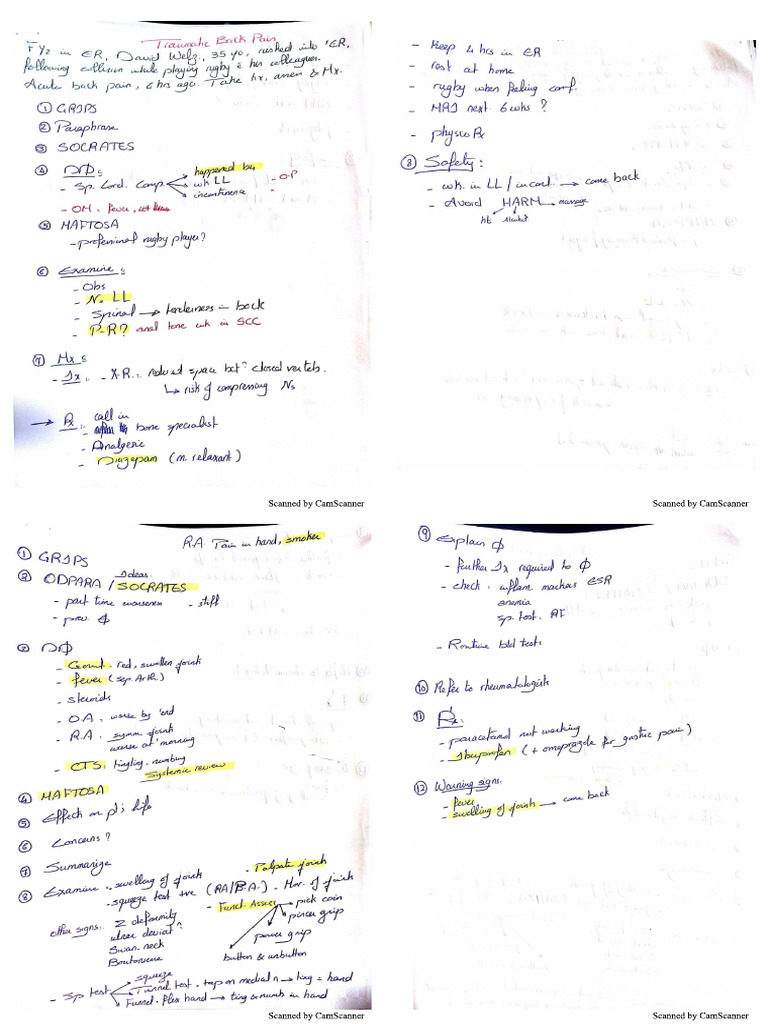 Traumatic Back Pain
FY2 in ER, David Welz, 35 yo, rushed into ER,
following collision while playing rugby c his colleagues.
Acute back pain, 6 hrs ago. Take hx, assess & Mx.
① GRIPS
② Paraphrase
③ SOCRATES
④ DD:
- Sp. Cord. Comp.
happened bef
wk LL
incontinence
- O.P
-
- OM. fever,
⑤ MAFTOSA
- professional rugby player?
⑥ Examine:
- Obs
- N. LL
- Spinal → tenderness in back
- P-R? anal tone wk in SCC
⑦ Mx:
- Ix: - X.R.: reduced space bet closed verteb.
↳ risk of compressing Ns
→ Rx:
call in
- bone specialist
- Analgesic
- Diazepam (m. relaxant)
Scanned by CamScanner
- Keep 4 hrs in ER
- rest at home
- rugby when feeling comf.
- MRI next 6 wks ?
- physio Rx
⑧ Safety:
- wk. in LL / incont. → come back
- Avoid HARM → massage
ht Alcohol
Scanned by CamScanner
R.A. Pain in hand, smoker
① GRIPS
② ODPARA / SOCRATES
Ideas
- part time - stiff
- prev. φ
③ DD
- Gout. red, swollen joints
- fever (sep. Arthr.)
- steroids
- O.A. worse by 'end
- R.A. symm. joints
worse at 'morning
- CTS: tingling. numbing
Systemic review
④ MAFTOSA
⑤ Effect on pt's life
⑥ Concerns?
⑦ Summarize
⑧ Examine . swelling of joints
- Palpate joints
- squeeze test +ve (RA/B.A.) . Mov. of joints
- Funct. Assess
pick coin
pincer grip
power grip
button & unbutton
other signs:
Z deformity
ulner deviat°
Swan neck
Boutonniere
- Sp test
squeeze
Tunnel test . tap on medial n → ting = hand
Funnel . flex hand → ting & numb in hand
Scanned by CamScanner
⑨ Explain φ
- further Ix required to φ
- check . inflam markers ESR
anemia
sp. test. RF
- Routine bld tests
⑩ Refer to rheumatologists
⑪ Rx:
- paracetamol not working
- Ibuprofen (+ omeprazole for gastric pain)
⑫ Warning signs:
- fever
- swelling of joints → come back
Scanned by CamScanner